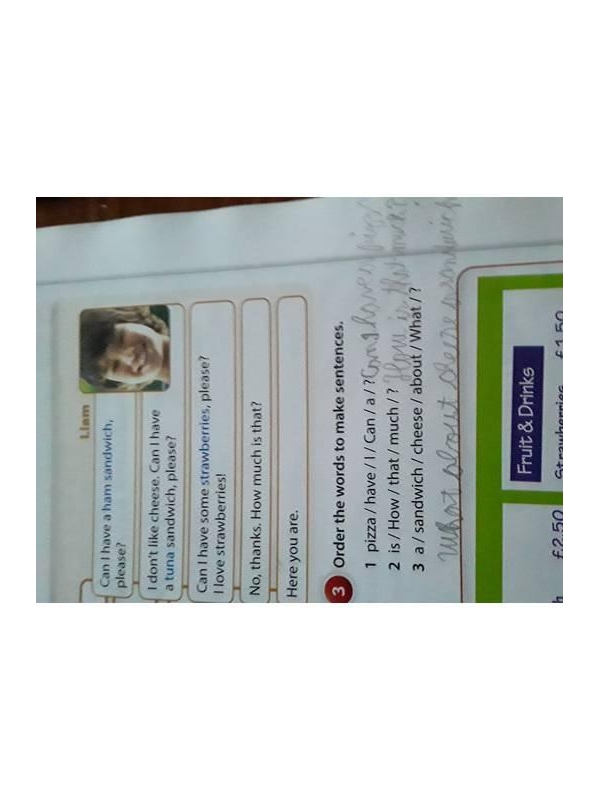 Liam
Can I have a ham sandwich,
please?
I don't like cheese. Can I have
a tuna sandwich, please?
Can I have some strawberries, please?
I love strawberries!
No, thanks. How much is that?
Here you are.
3 Order the words to make sentences.
1 pizza / have / I / Can / a / ?
2 is / How / that / much / ? How is that much?
3 a / sandwich / cheese / about / What / ?
What about cheese sandwich
Fruit & Drinks
£2.50 Strawberries £1.50